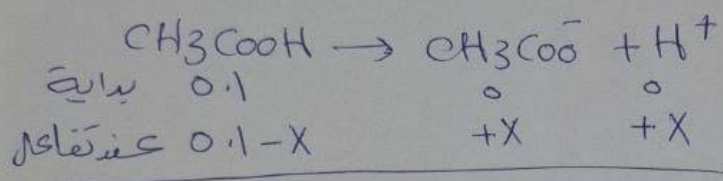 CH3COOH → CH3COO⁻ + H⁺
بداية 0.1 0 0
عند تفاعل 0.1-X +X +X